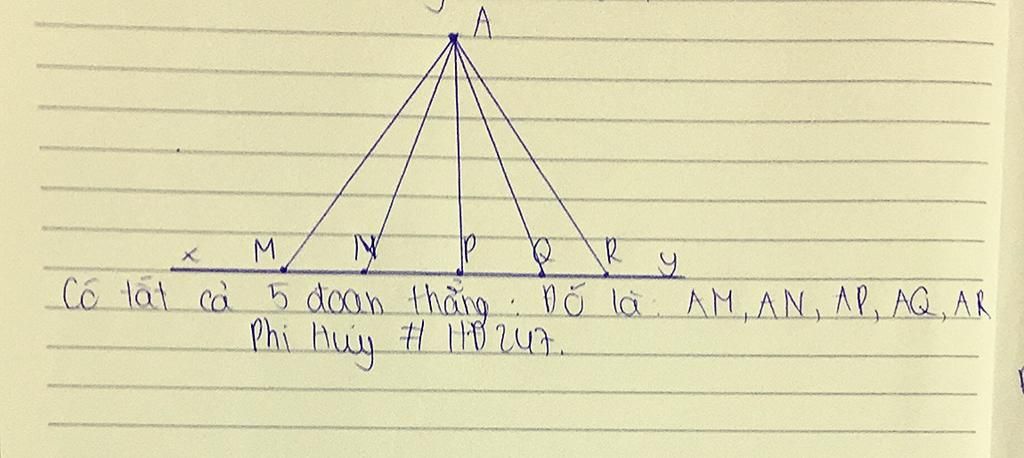 A
x M N P Q R y
Có tất cả 5 đoạn thẳng: Đó là: AM, AN, AP, AQ, AR
Phi Huy # HĐ247.